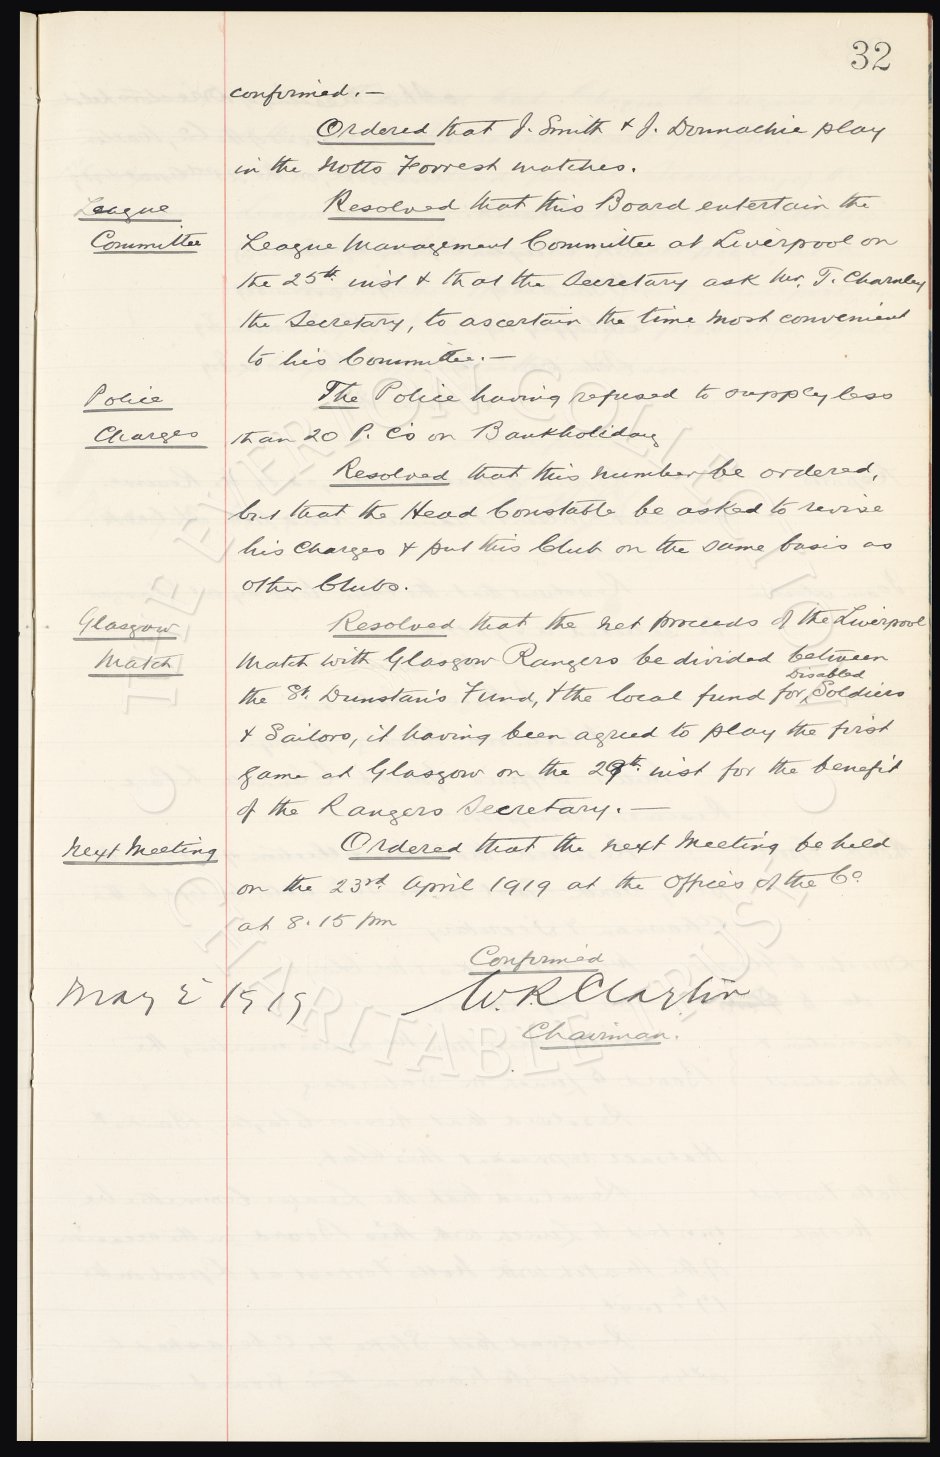 32
confirmed. —
Ordered that J. Smith & J. Donnachie play
in the Notts Forrest matches.
League
Committee
Resolved that this Board entertain the
League Management Committee at Liverpool on
the 25th. inst & that the Secretary ask Mr. T. Charnley
the Secretary, to ascertain the time most convenient
to his Committee. —
Police
Charges
The Police having refused to supply less
than 20 P. C's on Bankholiday
Resolved that this number be ordered,
but that the Head Constable be asked to revise
his charges & put this Club on the same basis as
other Clubs.
Glasgow
Match
Resolved that the net proceeds of the Liverpool
match with Glasgow Rangers be divided between
the St. Dunstan's Fund, & the local fund for Disabled Soldiers
& Sailors, it having been agreed to play the first
game at Glasgow on the 29th. inst for the benefit
of the Rangers Secretary. —
Next Meeting
Ordered that the next Meeting be held
on the 23rd. April 1919 at the Offices of the Co.
at 8.15 pm
Confirmed
May 2 1919
W. R. Clayton
Chairman.
THE EVERTON COLLECTION
CHARITABLE TRUST